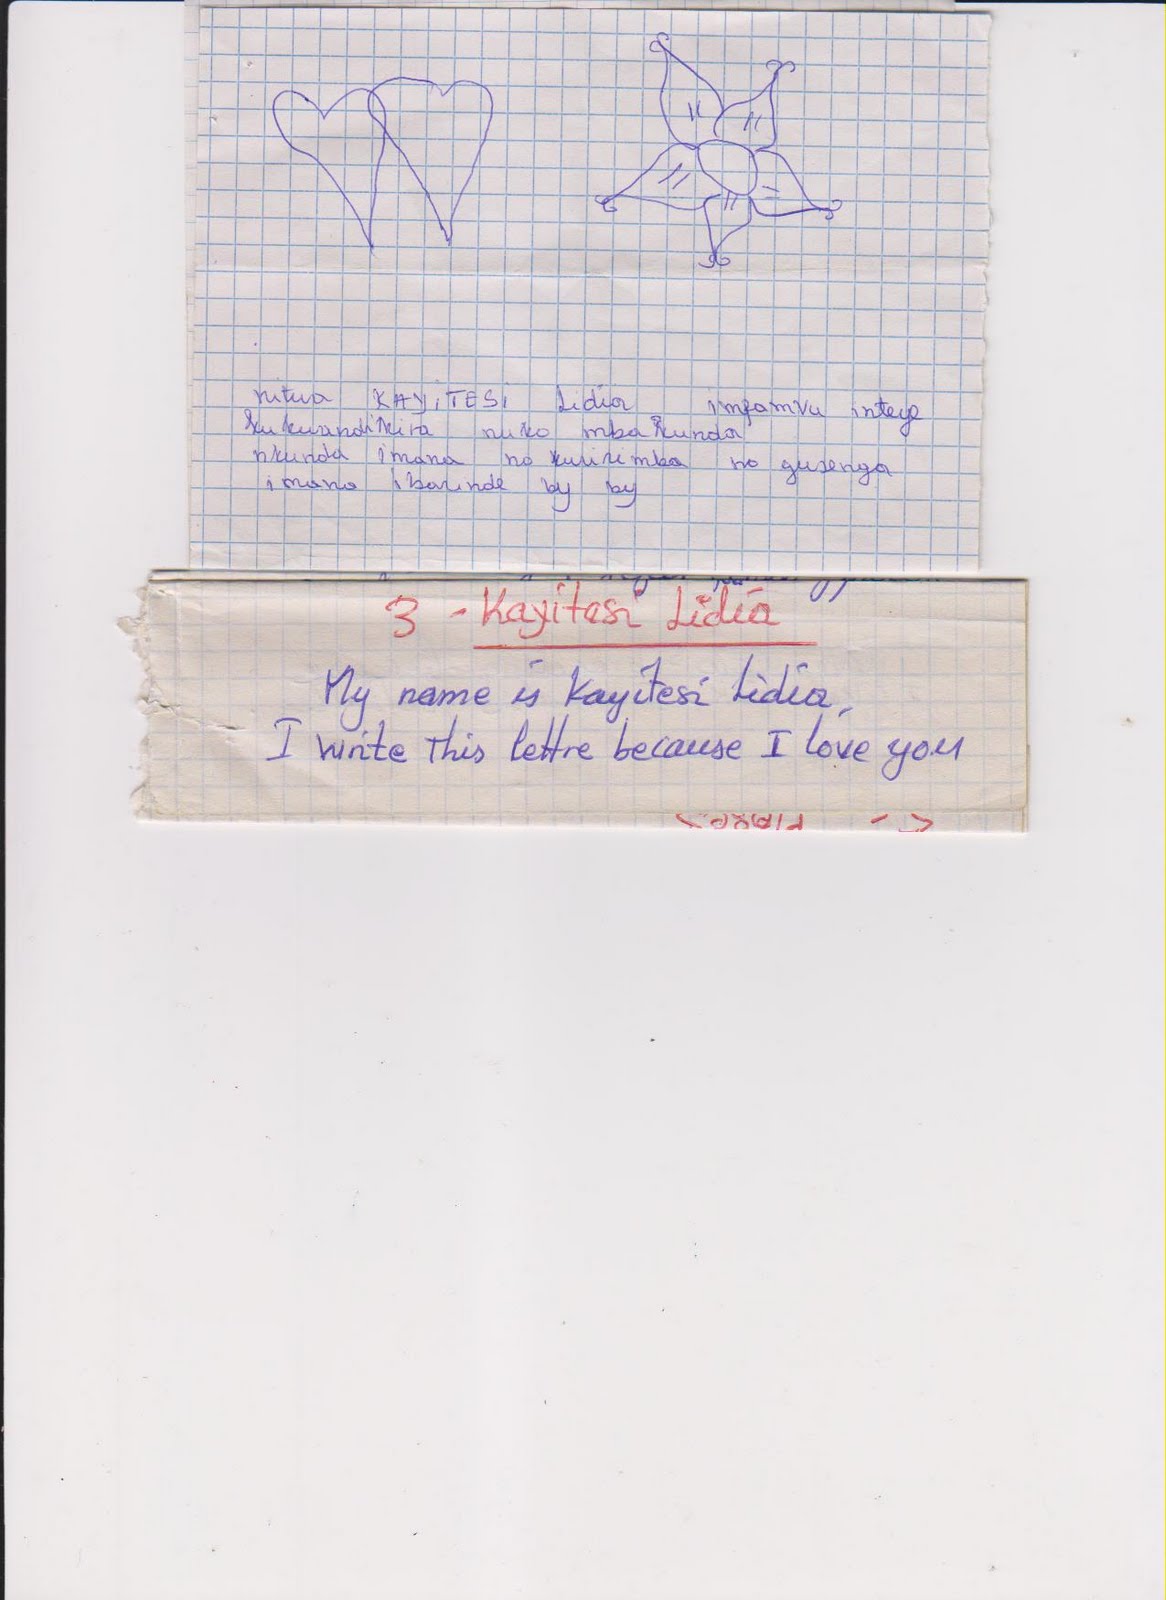 nitwa KAYiTESi Lidia impamvu inteye
kukwandikira nuko mbakunda
nkunda imana no kuririmba no gusenga
imana ibarinde by by
3 - Kayitesi Lidia
My name is Kayitesi Lidia,
I write this lettre because I love you